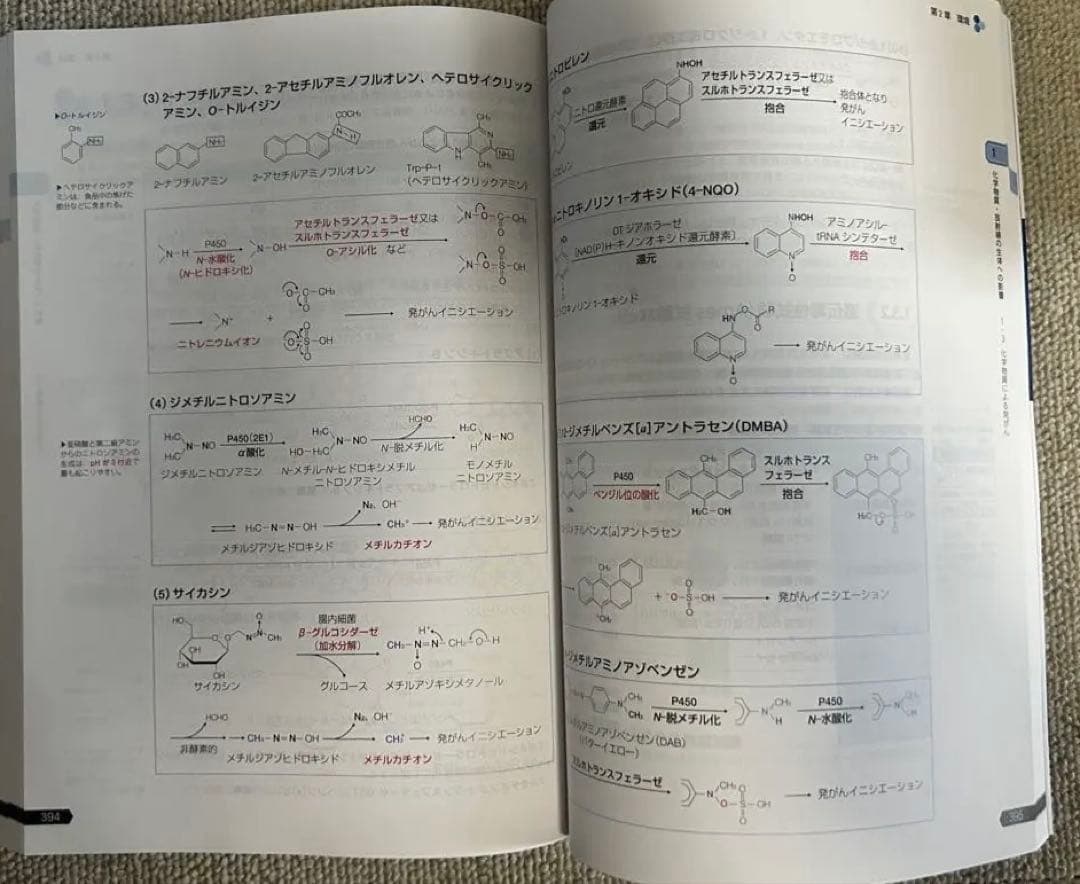 (3) 2-ナフチルアミン、2-アセチルアミノフルオレン、ヘテロサイクリック
アミン、O-トルイジン
▶O-トルイジン
CH₃
NH₂
NH₂
2-ナフチルアミン
COCH₃
N-H
2-アセチルアミノフルオレン
CH₃
N
N
H
CH₃
NH₂
Trp-P-1
(ヘテロサイクリックアミン)
▶ヘテロサイクリックア
ミンは、食品中の焦げた
部分などに含まれる。
N-H
P450
N-水酸化
(N-ヒドロキシ化)
N-OH
アセチルトランスフェラーゼ又は
スルホトランスフェラーゼ
O-アシル化 など
N-O-C-CH₃
O
O
N-O-S-OH
O
N⁺
ニトレニウムイオン
+
O-C-CH₃
O
O
O-S-OH
O
発がんイニシエーション
(4) ジメチルニトロソアミン
▶亜硝酸と第二級アミン
からのニトロソアミンの
生成は、pHが3付近で
最も起こりやすい。
H₃C
N-NO
H₃C
ジメチルニトロソアミン
P450(2E1)
α酸化
H₃C
N-NO
HO-H₂C
N-メチル-N-ヒドロキシメチル
ニトロソアミン
HCHO
N-脱メチル化
H₃C
N-NO
H
モノメチル
ニトロソアミン
H₃C-N=N-OH
メチルジアゾヒドロキシド
N₂, OH⁻
CH₃⁺
メチルカチオン
発がんイニシエーション
(5) サイカシン
HO
O
OH
OH
OH
O
N=N
CH₃
サイカシン
腸内細菌
β-グルコシダーゼ
(加水分解)
グルコース
H⁺
CH₃-N=N-CH₂-O-H
O
メチルアゾキシメタノール
HCHO
非酵素的
CH₃-N=N-OH
メチルジアゾヒドロキシド
N₂, OH⁻
CH₃⁺
メチルカチオン
発がんイニシエーション
394
第2章 環境
ニトロピレン
ニトロ還元酵素
還元
NHOH
アセチルトランスフェラーゼ又は
スルホトランスフェラーゼ
抱合
抱合体となり
発がん
イニシエーション
ピレン
ニトロキノリン 1-オキシド(4-NQO)
DTジアホラーゼ
〔NAD(P)H-キノンオキシド還元酵素〕
還元
NHOH
N
O
アミノアシル-
tRNA シンテターゼ
抱合
ロキノリン 1-オキシド
HN
O
O
R
N
O
発がんイニシエーション
ジメチルベンズ[a]アントラセン(DMBA)
P450
ベンジル位の酸化
CH₃
H₂C-OH
スルホトランス
フェラーゼ
抱合
CH₃
メチルベンズ[a]アントラセン
CH₃
CH₂
+
⁻O-S-OH
O
O
発がんイニシエーション
ジメチルアミノアゾベンゼン
CH₃
N
CH₃
P450
N-脱メチル化
CH₃
N
H
P450
N-水酸化
CH₃
N
OH
チルアミノアゾベンゼン(DAB)
(バターイエロー)
スルホトランスフェラーゼ
CH₃
N
O
O
S-OH
O
発がんイニシエーション
395
1
化学物質・放射線の生体への影響
1・3 化学物質による発がん